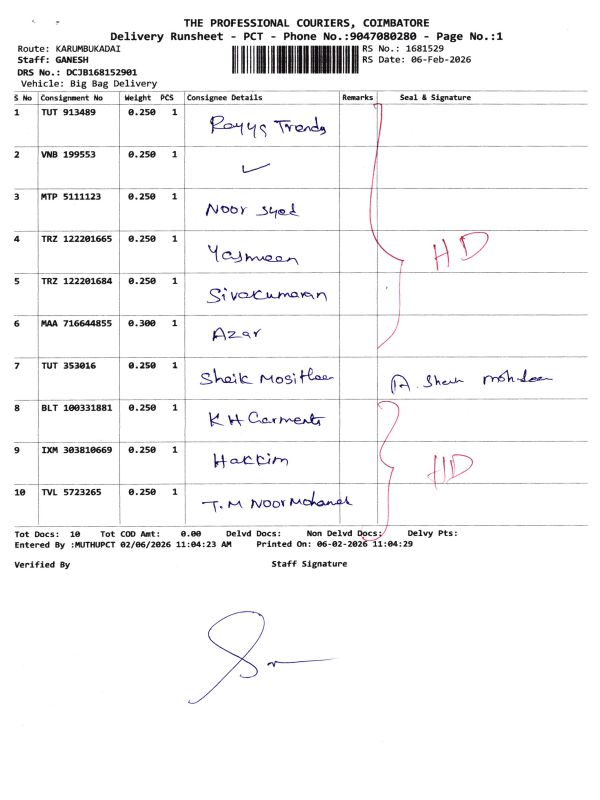 THE PROFESSIONAL COURIERS, COIMBATORE
Delivery Runsheet - PCT - Phone No.:9047080280 - Page No.:1
Route: KARUMBUKADAI RS No.: 1681529
Staff: GANESH RS Date: 06-Feb-2026
DRS No.: DCJB168152901
Vehicle: Big Bag Delivery
S No Consignment No Weight PCS Consignee Details Remarks Seal & Signature
1 TUT 913489 0.250 1 Trends
2 VNB 199553 0.250 1 ✓
3 MTP 5111123 0.250 1 Noor syed
4 TRZ 122201665 0.250 1 Yasmeen HD
5 TRZ 122201684 0.250 1 Sivakumaran
6 MAA 716644855 0.300 1 Azar
7 TUT 353016 0.250 1 Sheik A. Sheik
8 BLT 100331881 0.250 1 K H Garments
9 IXM 303810669 0.250 1 Hakkim HD
10 TVL 5723265 0.250 1 T.M NOOR
Tot Docs: 10 Tot COD Amt: 0.00 Delvd Docs: Non Delvd Docs: Delvy Pts:
Entered By :MUTHUPCT 02/06/2026 11:04:23 AM Printed On: 06-02-2026 11:04:29
Verified By Staff Signature